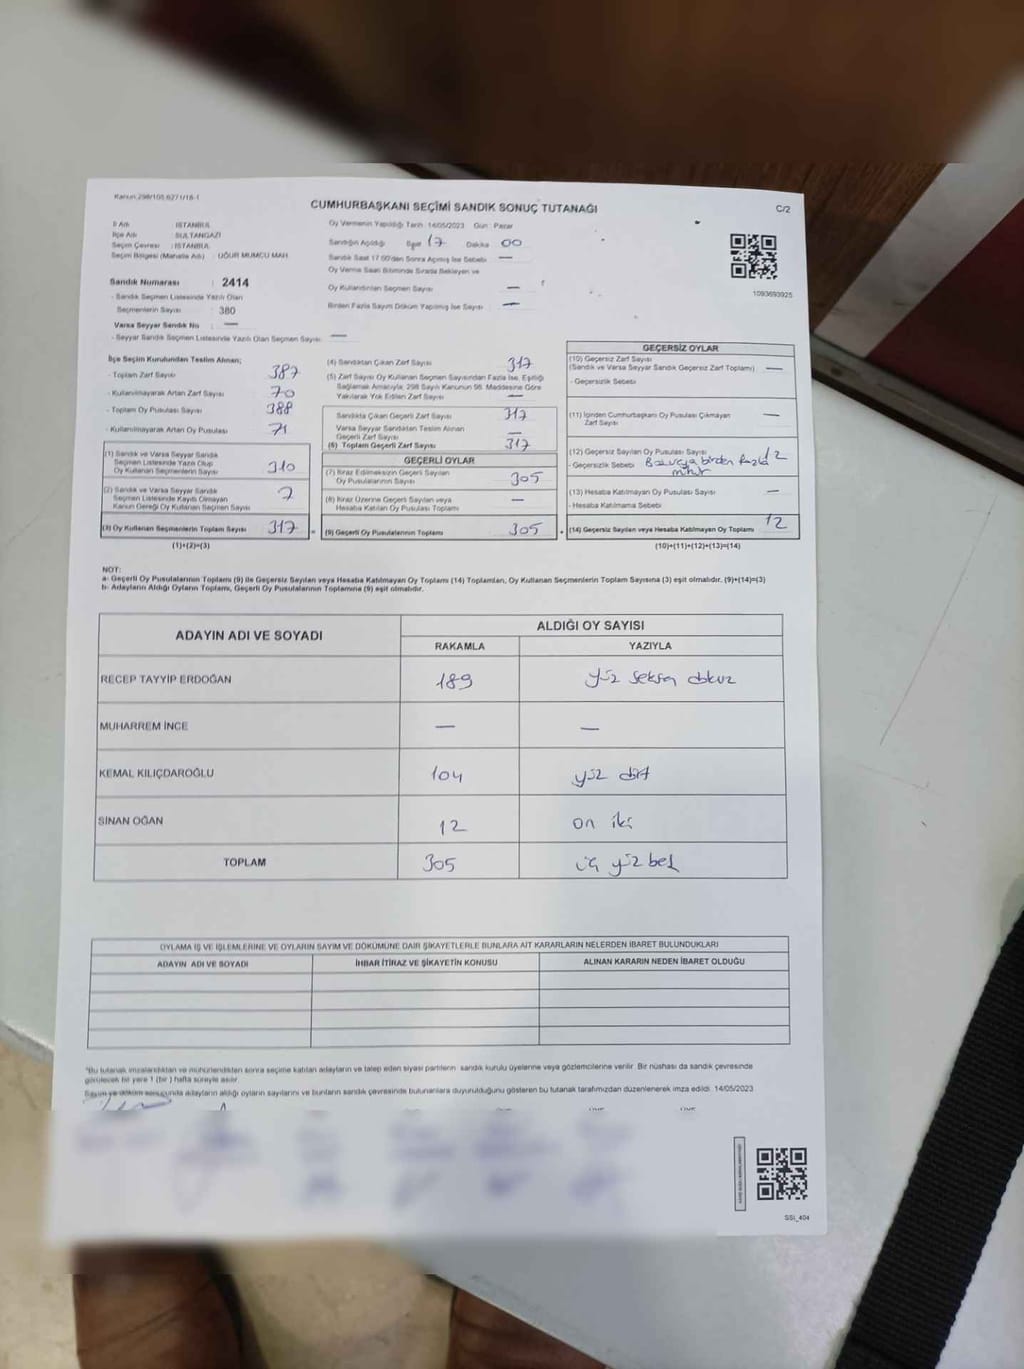 Kanun 298/105 6271/16-1
CUMHURBAŞKANI SEÇİMİ SANDIK SONUÇ TUTANAĞI
C/2
İl Adı : İSTANBUL
İlçe Adı : SULTANGAZİ
Seçim Çevresi : İSTANBUL
Seçim Bölgesi (Mahalle Adı) : UĞUR MUMCU MAH.
Sandık Numarası : 2414
- Sandık Seçmen Listesinde Yazılı Olan
Seçmenlerin Sayısı : 380
Varsa Seyyar Sandık No : —
- Seyyar Sandık Seçmen Listesinde Yazılı Olan Seçmen Sayısı —
Oy Vermenin Yapıldığı Tarih 14/05/2023 Gün : Pazar
Sandığın Açıldığı Saat 17 Dakika 00
Sandık Saat 17.00'den Sonra Açılmış İse Sebebi —
Oy Verme Saati Bitiminde Sırada Bekleyen ve
Oy Kullandırılan Seçmen Sayısı —
Birden Fazla Sayım Döküm Yapılmış İse Sayısı —
1093693925
İlçe Seçim Kurulundan Teslim Alınan;
- Toplam Zarf Sayısı 387
- Kullanılmayarak Artan Zarf Sayısı 70
- Toplam Oy Pusulası Sayısı 388
- Kullanılmayarak Artan Oy Pusulası 71
(1) Sandık ve Varsa Seyyar Sandık
Seçmen Listesinde Yazılı Olup
Oy Kullanan Seçmenlerin Sayısı 310
(2) Sandık ve Varsa Seyyar Sandık
Seçmen Listesinde Kayıtlı Olmayan
Kanun Gereği Oy Kullanan Seçmen Sayısı 7
(3) Oy Kullanan Seçmenlerin Toplam Sayısı 317 =
(1)+(2)=(3)
(4) Sandıktan Çıkan Zarf Sayısı 317
(5) Zarf Sayısı Oy Kullanan Seçmen Sayısından Fazla İse, Eşitliği
Sağlamak Amacıyla, 298 Sayılı Kanunun 98. Maddesine Göre
Yakılarak Yok Edilen Zarf Sayısı —
Sandıkta Çıkan Geçerli Zarf Sayısı 317
Varsa Seyyar Sandıktan Teslim Alınan
Geçerli Zarf Sayısı —
(6) Toplam Geçerli Zarf Sayısı 317
GEÇERLİ OYLAR
(7) İtiraz Edilmeksizin Geçerli Sayılan
Oy Pusulalarının Sayısı 305
(8) İtiraz Üzerine Geçerli Sayılan veya
Hesaba Katılan Oy Pusulası Toplamı —
(9) Geçerli Oy Pusulalarının Toplamı 305 +
GEÇERSİZ OYLAR
(10) Geçersiz Zarf Sayısı
(Sandık ve Varsa Seyyar Sandık Geçersiz Zarf Toplamı) —
- Geçersizlik Sebebi
(11) İçinden Cumhurbaşkanı Oy Pusulası Çıkmayan
Zarf Sayısı —
(12) Geçersiz Sayılan Oy Pusulası Sayısı 12
- Geçersizlik Sebebi birden fazla
mühür
(13) Hesaba Katılmayan Oy Pusulası Sayısı —
- Hesaba Katılmama Sebebi
(14) Geçersiz Sayılan veya Hesaba Katılmayan Oy Toplamı 12
(10)+(11)+(12)+(13)=(14)
NOT:
a- Geçerli Oy Pusulalarının Toplamı (9) ile Geçersiz Sayılan veya Hesaba Katılmayan Oy Toplamı (14) Toplamları, Oy Kullanan Seçmenlerin Toplam Sayısına (3) eşit olmalıdır. (9)+(14)=(3)
b- Adayların Aldığı Oyların Toplamı, Geçerli Oy Pusulalarının Toplamına (9) eşit olmalıdır.
ADAYIN ADI VE SOYADI
ALDIĞI OY SAYISI
RAKAMLA YAZIYLA
RECEP TAYYİP ERDOĞAN 189 yüz seksen dokuz
MUHARREM İNCE — —
KEMAL KILIÇDAROĞLU 104 yüz dört
SİNAN OĞAN 12 on iki
TOPLAM 305 üç yüz beş
OYLAMA İŞ VE İŞLEMLERİNE VE OYLARIN SAYIM VE DÖKÜMÜNE DAİR ŞİKAYETLERLE BUNLARA AİT KARARLARIN NELERDEN İBARET BULUNDUKLARI
ADAYIN ADI VE SOYADI İHBAR İTİRAZ VE ŞİKAYETİN KONUSU ALINAN KARARIN NEDEN İBARET OLDUĞU
"Bu tutanak imzalandıktan ve mühürlendikten sonra seçime katılan adayların ve talep eden siyasi partilerin sandık kurulu üyelerine veya gözlemcilerine verilir. Bir nüshası da sandık çevresinde
görülecek bir yere 1 (bir ) hafta süreyle asılır.
Sayım ve döküm sonucunda adayların aldığı oyların sayılarını ve bunların sandık çevresinde bulunanlara duyurulduğunu gösteren bu tutanak tarafımızdan düzenlenerek imza edildi. 14/05/2023
SSİ_404